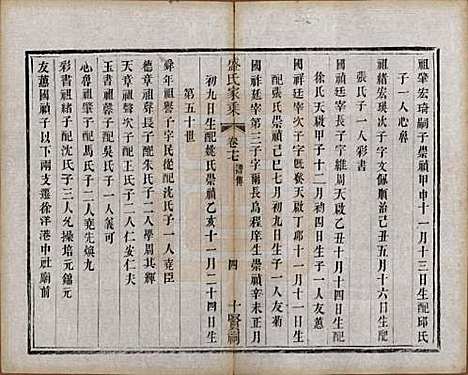 祖肇宏琦嗣子崇禎甲申十一月十三日生配邱氏
子一人心彝
祖緒宏瑛次子字文佩順治己亥五月十六日生配
張氏子一人彩書
國禎廷宰長子字維周天啟乙丑十月十四日生配
徐氏天啟甲子十二月初四日生子一人友蕙
國祥廷宰次子字既敘天啟丁卯十一月十一日生
配張氏崇禎己巳七月初九日生子一人友菊
國祚廷宰第三子字爾長爲程序生崇禎辛未正月
盛氏家乘
卷七
譜傳
四
十賢祠
初九日生配姚氏崇禎乙亥十一月二十四日生
第五十世
舜年祖譽子字民從配沈氏子一人堯臣
德章祖聲長子字文彝配朱氏子二人學周其釋
天章祖聲次子配朱氏子二人仁安仁夫
玉書祖庭子配吳氏子一人義可
心彝祖肇子配馬氏子二人堯先煥九
彩書祖緒子配沈氏子三人允操培元錫元
友蕙國禎子以下兩支遷徐洋港中社廟前